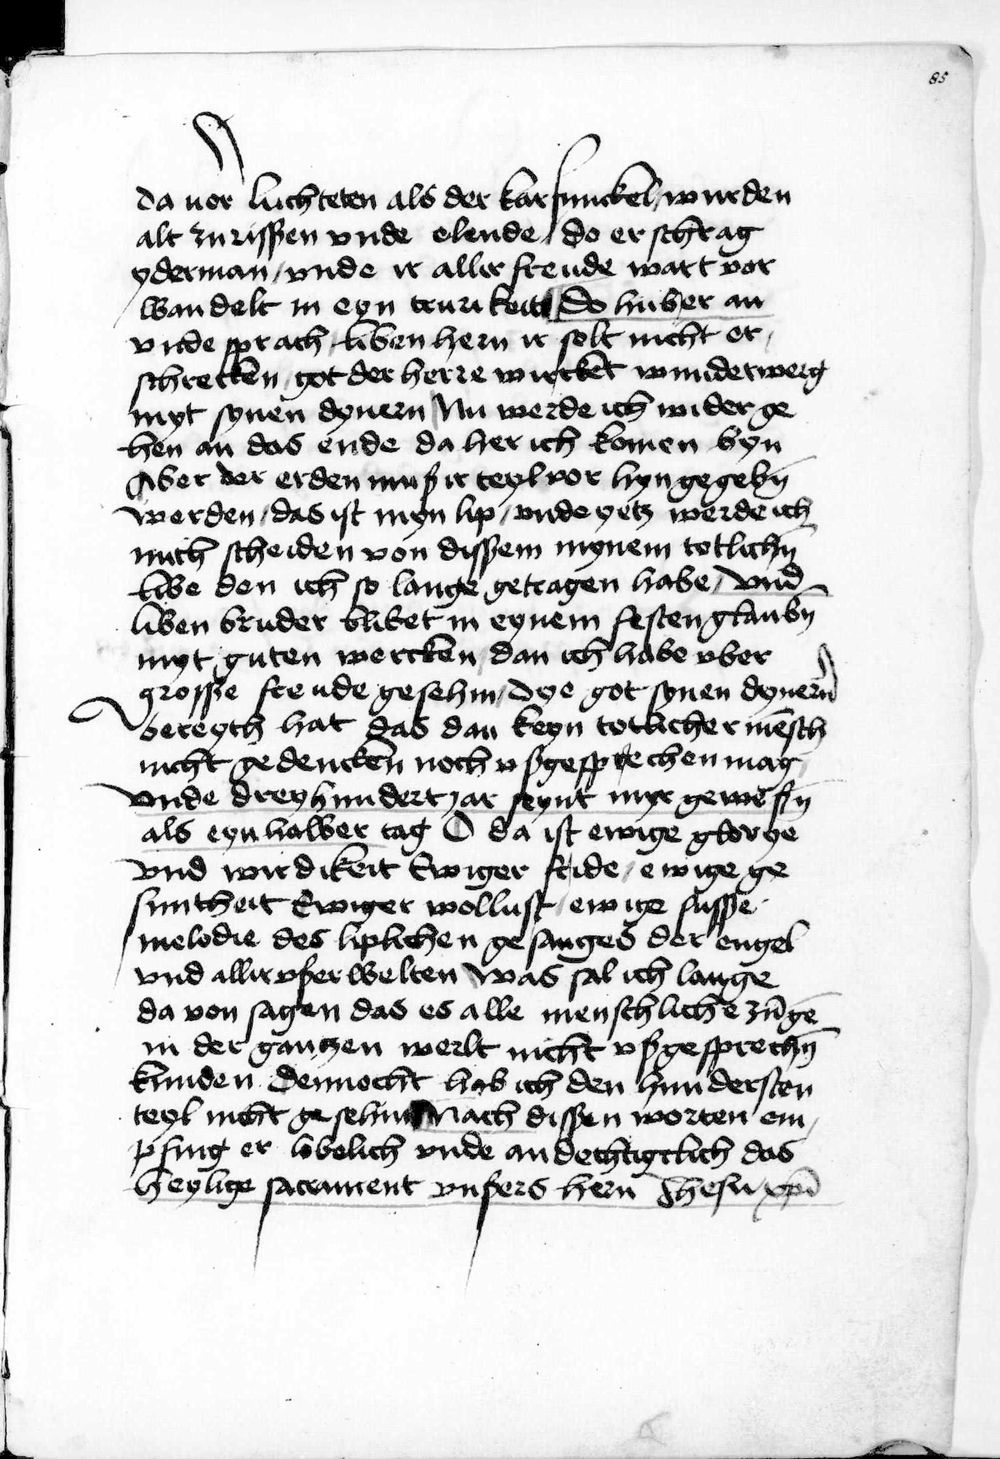 85
da uor luchteten als der karfunckel / wurden
alt zurissen vnde elende / do erschrag
yderman / vnde ir aller freude wart vor
wandelt in eyn trurikeit Do huber an
vnde sprach liben hern ir solt nicht er /
schrecken / got der herre wircket wunderwerg
myt synen dynern Nu werde ich wider ge
hen an das ende da her ich komen byn
Aber der erden muß ir teyl vor hyn gegebn̄
werden / das ist myn lip / vnde yetz werde ich
mich scheiden von dissem mynem totlichn̄
libe den ich so lange getragen habe / vnd
liben bruder blibet in eynem festen glaubn̄
myt guten wercken / dan ich habe vber
grosse freude gesehin / dye got synen dynern
bereyth hat das dan keyn totlicher mēsch
nicht gedencken noch vßgesprechen mag
vnde dreyhundert jar seynt myr gewesn̄
als eyn halber tag O da ist ewige glorye
vnd wirdikeit Ewiger fride / ewige ge
suntheit Ewiger wollust / ewige susse
melodie des liplichen gesanges der engel
vnd aller vßerwelten Was sal ich lange
da von sagen das es alle menschliche zūge
in der gantzen werlt nicht vßgesprechn̄
kunden dennocht hab ich den hundersten
teyl nicht gesehin Nach dissen worten em /
pfing er lobelich vnde andechtigtlich das
heylige sacrament vnsers hern Jhesu xp̄i